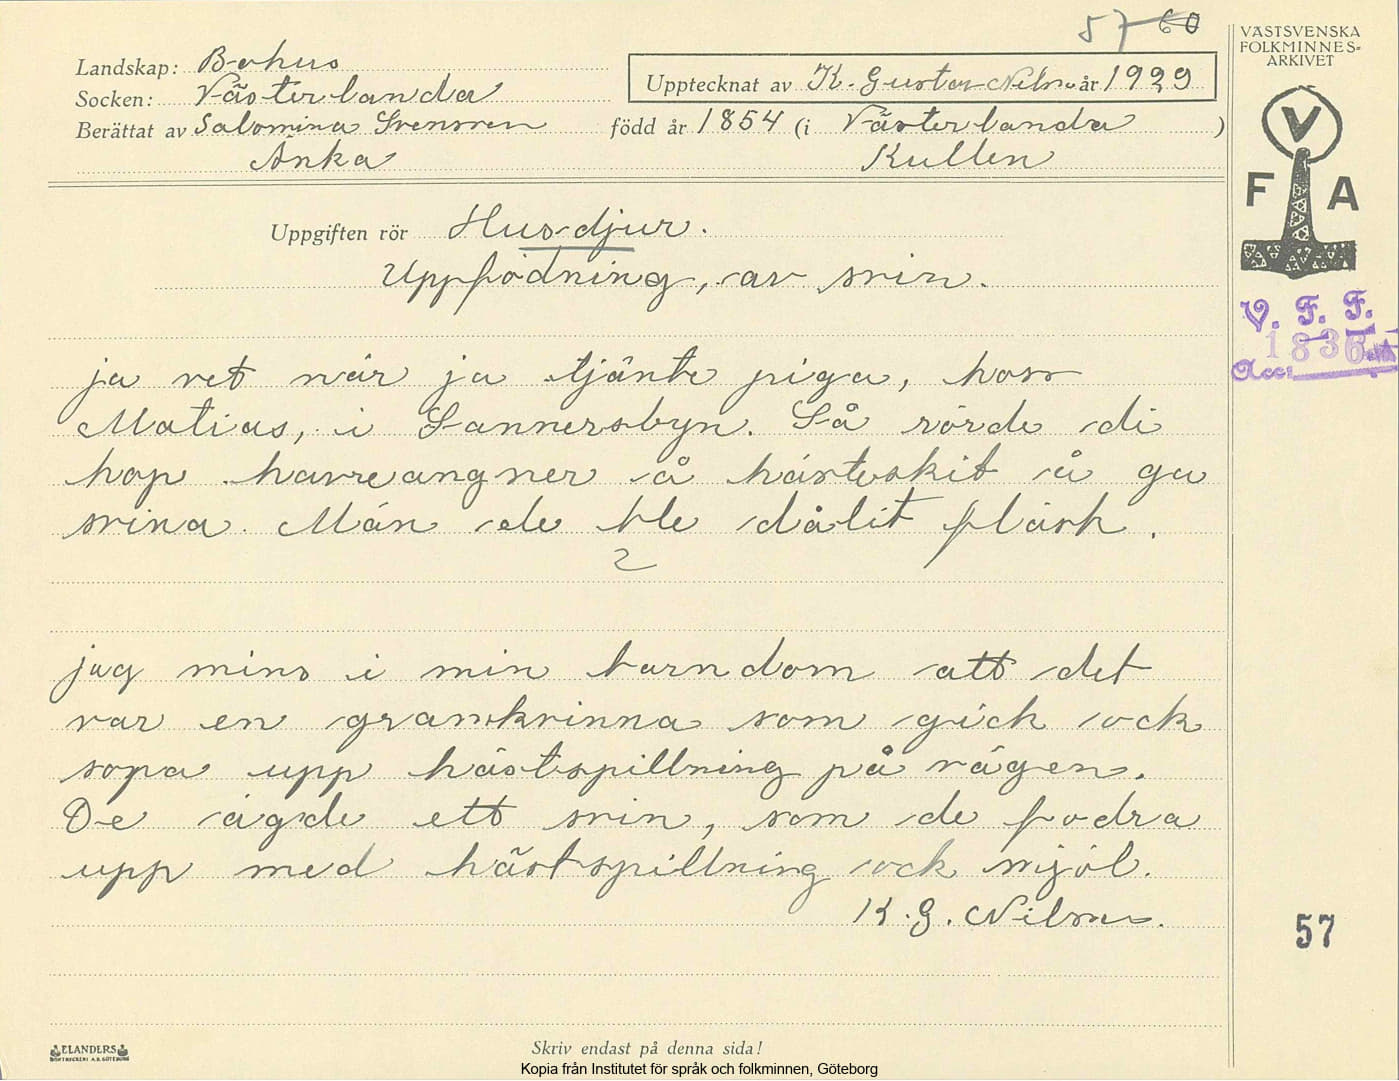 57 60
VÄSTSVENSKA
FOLKMINNES-
ARKIVET
Landskap: Bohus
Upptecknat av K. Gustav Nilson år 1929
Socken: Västerlanda
Berättat av Salomina Svensson född år 1854 (i Västerlanda )
Änka Kullen
V
F A
Uppgiften rör Husdjur.
Uppfödning, av svin.
V. F. F.
1836
Acc:
ja vet när ja tjänte piga, hoss
Matias, i Sannersbyn. Så rörde di
hop havreangner å hästeskit å ga
svina. Män de ble dålit fläsk.
2
jag mins i min barndom att det
var en grannkvinna som gick ock
sopa upp hästspillning på vägen.
De ägde ett svin, som de fodra
upp med hästspillning ock mjöl.
K. G. Nilson.
57
ELANDERS
BOKTRYCKERI A.B. GÖTEBORG
Skriv endast på denna sida!
Kopia från Institutet för språk och folkminnen, Göteborg